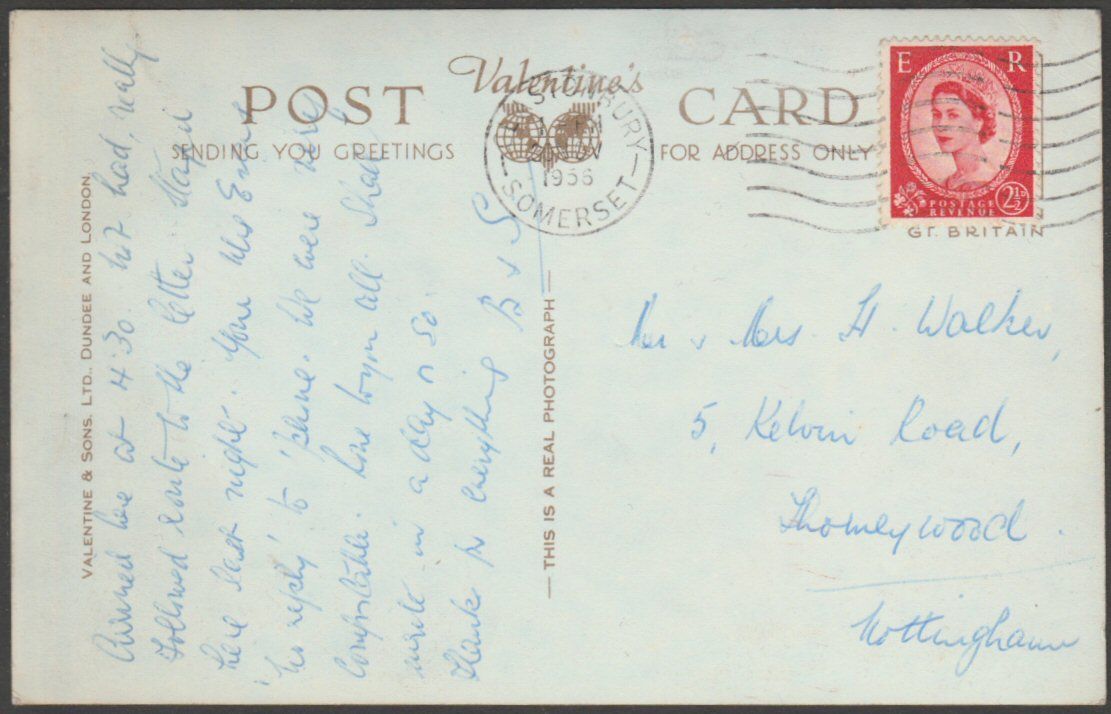 Valentine's
POST CARD
SENDING YOU GREETINGS
FOR ADDRESS ONLY
1956
SOMERSET
E R
POSTAGE
REVENUE
2½D
GT. BRITAIN
VALENTINE & SONS. LTD., DUNDEE AND LONDON.
THIS IS A REAL PHOTOGRAPH
Arrived here at 4.30. not bad, really
Followed route to the letter. Stayed
here last night. Your Mrs
'no reply' to 'phone. We were very
comfortable. love to you all. Shall
write in a day or so.
Thanks for everything B & S
Mr & Mrs H. Walker,
5, Kelvin Road,
Thorneywood.
Nottingham